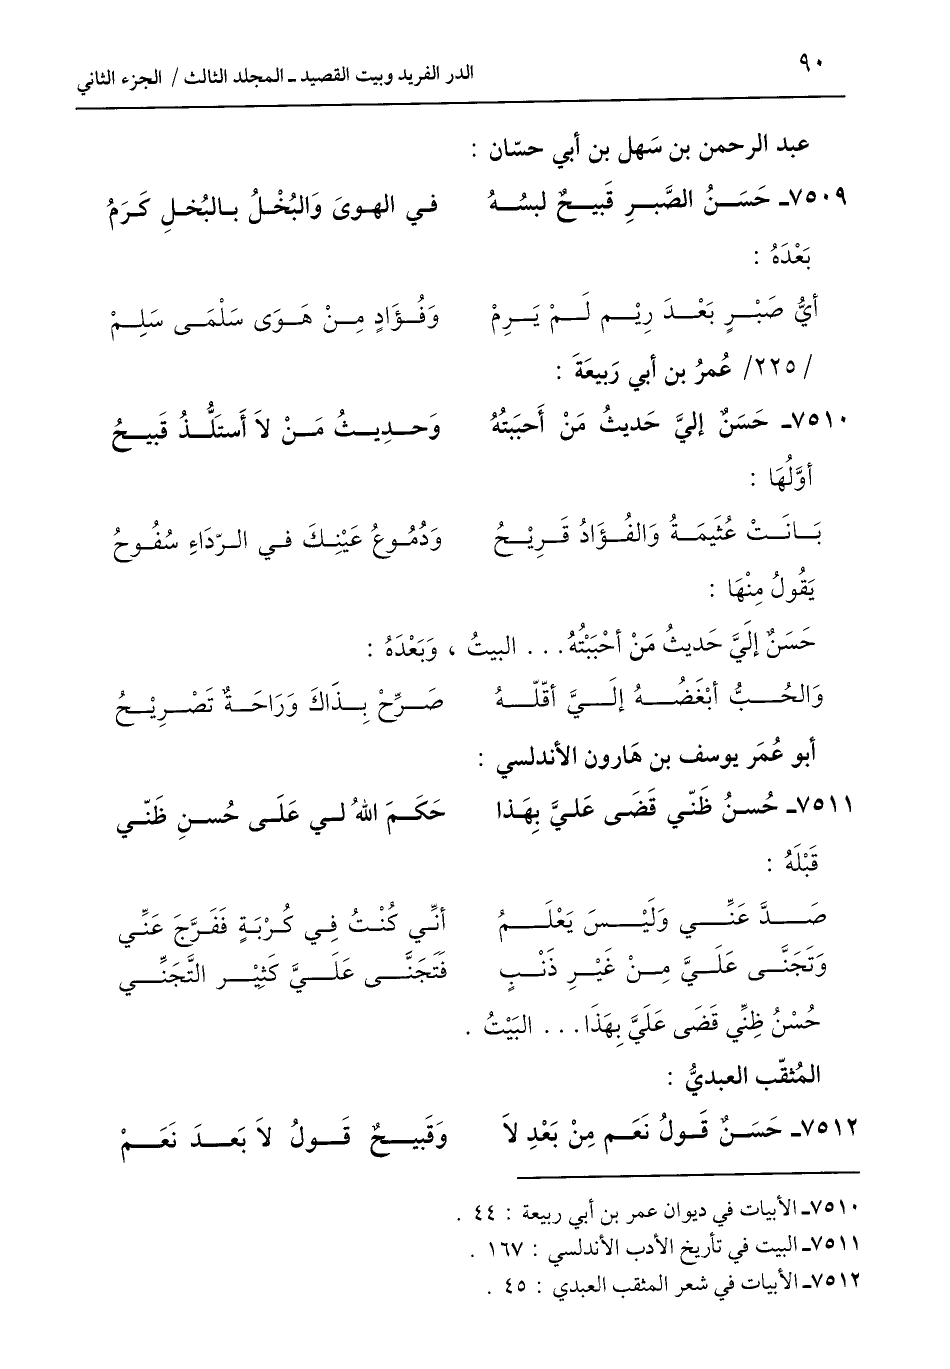 ٩٠
الدر الفريد وبيت القصيد ـ المجلد الثالث / الجزء الثاني
عبد الرحمن بن سَهل بن أبي حسّان :
٧٥٠٩ـ حَسَنُ الصَّبرِ قَبيحٌ لبسُهُ في الهوىَ وَالبُخْلُ بالبُخلِ كَرَمُ
بَعْدَهُ :
أيُّ صَبْرٍ بَعْدَ رِيْمٍ لَمْ يَرِمْ وَفُؤَادٍ مِنْ هَوَى سَلْمَى سَلِمْ
/ ٢٢٥/ عُمرُ بن أبي رَبيعَةَ :
٧٥١٠ـ حَسَنٌ إليَّ حَديثُ مَنْ أَحبَبتُهُ وَحديثُ مَنْ لاَ أَستَلُّذُ قَبيحُ
أوَّلُهَا :
بَانَتْ عُثيمَةُ وَالفُؤَادُ قَرِيْحُ وَدُمُوعُ عَيْنِكَ في الرّدَاءِ سُفُوحُ
يَقُولُ مِنْهَا :
حَسَنٌ إلَيَّ حَديثُ مَنْ أحْبَبْتُهُ . . . البيتُ ، وَبَعْدَهُ :
وَالحُبُّ أبْغَضُهُ إلَيَّ أقَلّهُ صَرِّحْ بِذَاكَ وَرَاحَةٌ تَصْرِيْحُ
أبو عُمَر يوسف بن هَارون الأندلسي :
٧٥١١ـ حُسنُ ظَنّي قَضَى عَليَّ بِهَذا حَكَمَ اللهُ لي عَلَى حُسنِ ظَنّي
قَبْلَهُ :
صَدَّ عَنِّي وَلَيْسَ يَعْلَمُ أنِّي كُنْتُ فِي كُرْبَةٍ فَفَرَّجَ عَنِّي
وَتَجَنَّى عَلَيَّ مِنْ غَيْرِ ذَنْبٍ فَتَجَنَّى عَلَيَّ كَثِيْرِ التَّجَنِّي
حُسْنُ ظِنِّي قَضَى عَلَيَّ بِهَذَا . . . البَيْتُ .
المُثقّب العبديُّ :
٧٥١٢ـ حَسَنٌ قَولُ نَعَم مِنْ بَعْدِ لاَ وَقَبيحٌ قَولُ لاَ بَعدَ نَعَمْ
٧٥١٠ـ الأبيات في ديوان عمر بن أبي ربيعة : ٤٤ .
٧٥١١ـ البيت في تأريخ الأدب الأندلسي : ١٦٧ .
٧٥١٢ـ الأبيات في شعر المثقب العبدي : ٤٥ .